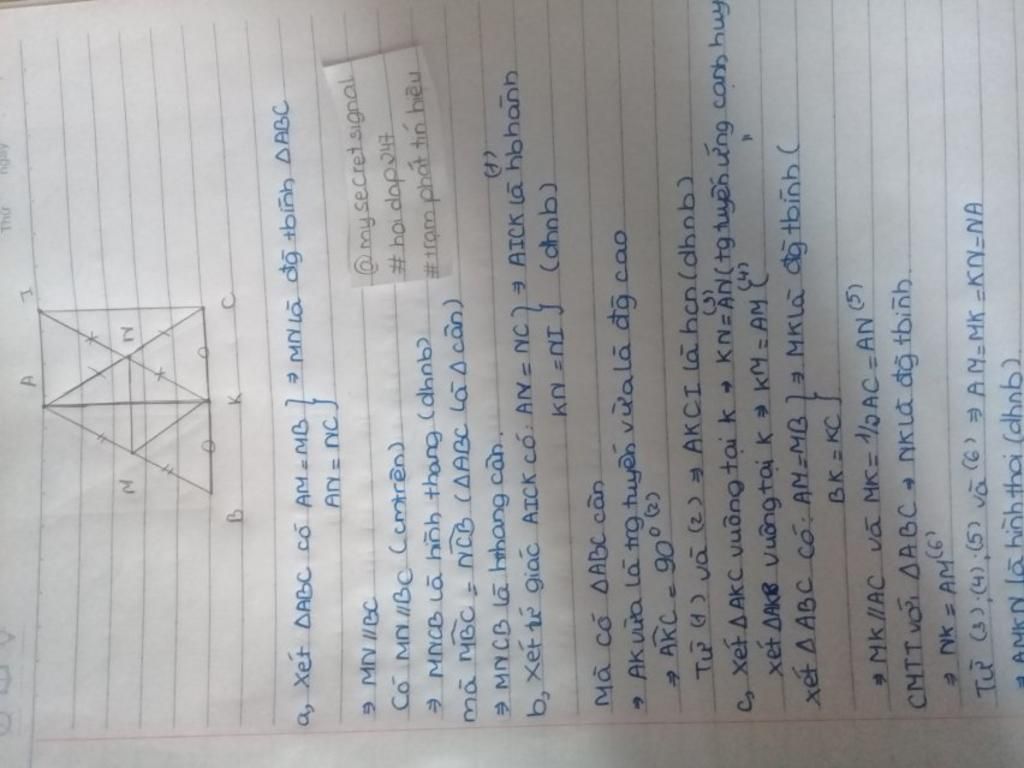 Thứ
ngày
A
I
M
N
B
K
C
a, xét ΔABC có AM = MB } ⇒ MN là đg tbình ΔABC
AN = NC
⇒ MN // BC
Có MN // BC (cmtrên)
⇒ MNCB là hình thang (dhnb)
mà MBC = NCB (ΔABC là Δ cân)
⇒ MNCB là hthang cân.
@mysecretsignal
# hoidap247
# trạm phát tín hiệu
b, xét tứ giác AICK có: AN = NC } ⇒ AICK là hbhành (1)
KN = NI (dhnb)
Mà có ΔABC cân
⇒ AK vừa là trg tuyến vừa là đg cao
⇒ AKC = 90° (2)
Từ (1) và (2) ⇒ AKCI là hcn (dhnb)
c, xét ΔAKC vuông tại K ⇒ KN = AN (3) (tg tuyến ứng cạnh huy
xét ΔAKB vuông tại K ⇒ KM = AM (4) ( "
xét ΔABC có: AM = MB } ⇒ MK là đg tbình (
BK = KC
⇒ MK // AC và MK = 1/2 AC = AN (5)
CMTT với ΔABC ⇒ NK là đg tbình
⇒ NK = AM (6)
Từ (3), (4), (5) và (6) ⇒ AM = MK = KN = NA
⇒ AMKN là hình thoi (dhnb)